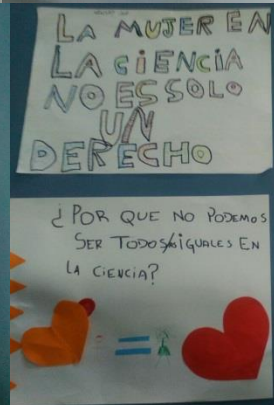 LA MUJER EN
LA CIENCIA
NO ES SOLO
UN
DERECHO
¿POR QUE NO PODEMOS
SER TODOS/AS IGUALES EN
LA CIENCIA?
=